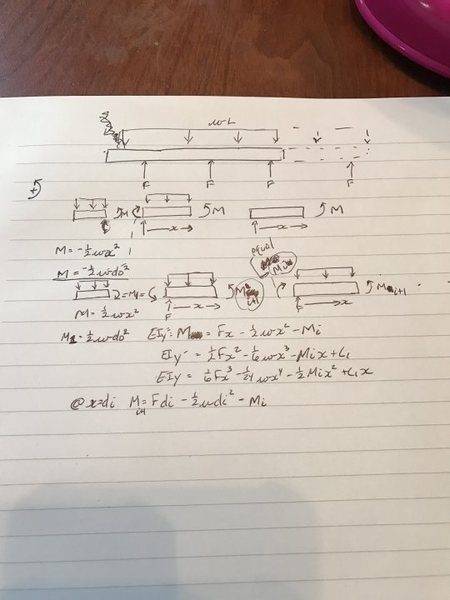 wL
F F F F
M M M
x x
M = -½wx²
M = -½wd₀²
M = ½wx²
M₁ = ½wd₀²
F x F x
equal Mᵢ
Mᵢ₊₁
EIy'' = M = Fx - ½wx² - Mᵢ
EIy' = ½Fx² - ⅙wx³ - Mᵢx + C₁
EIy = ⅙Fx³ - 1/24 wx⁴ - ½Mᵢx² + C₁x
@ x=dᵢ Mᵢ₊₁ = Fdᵢ - ½wdᵢ² - Mᵢ